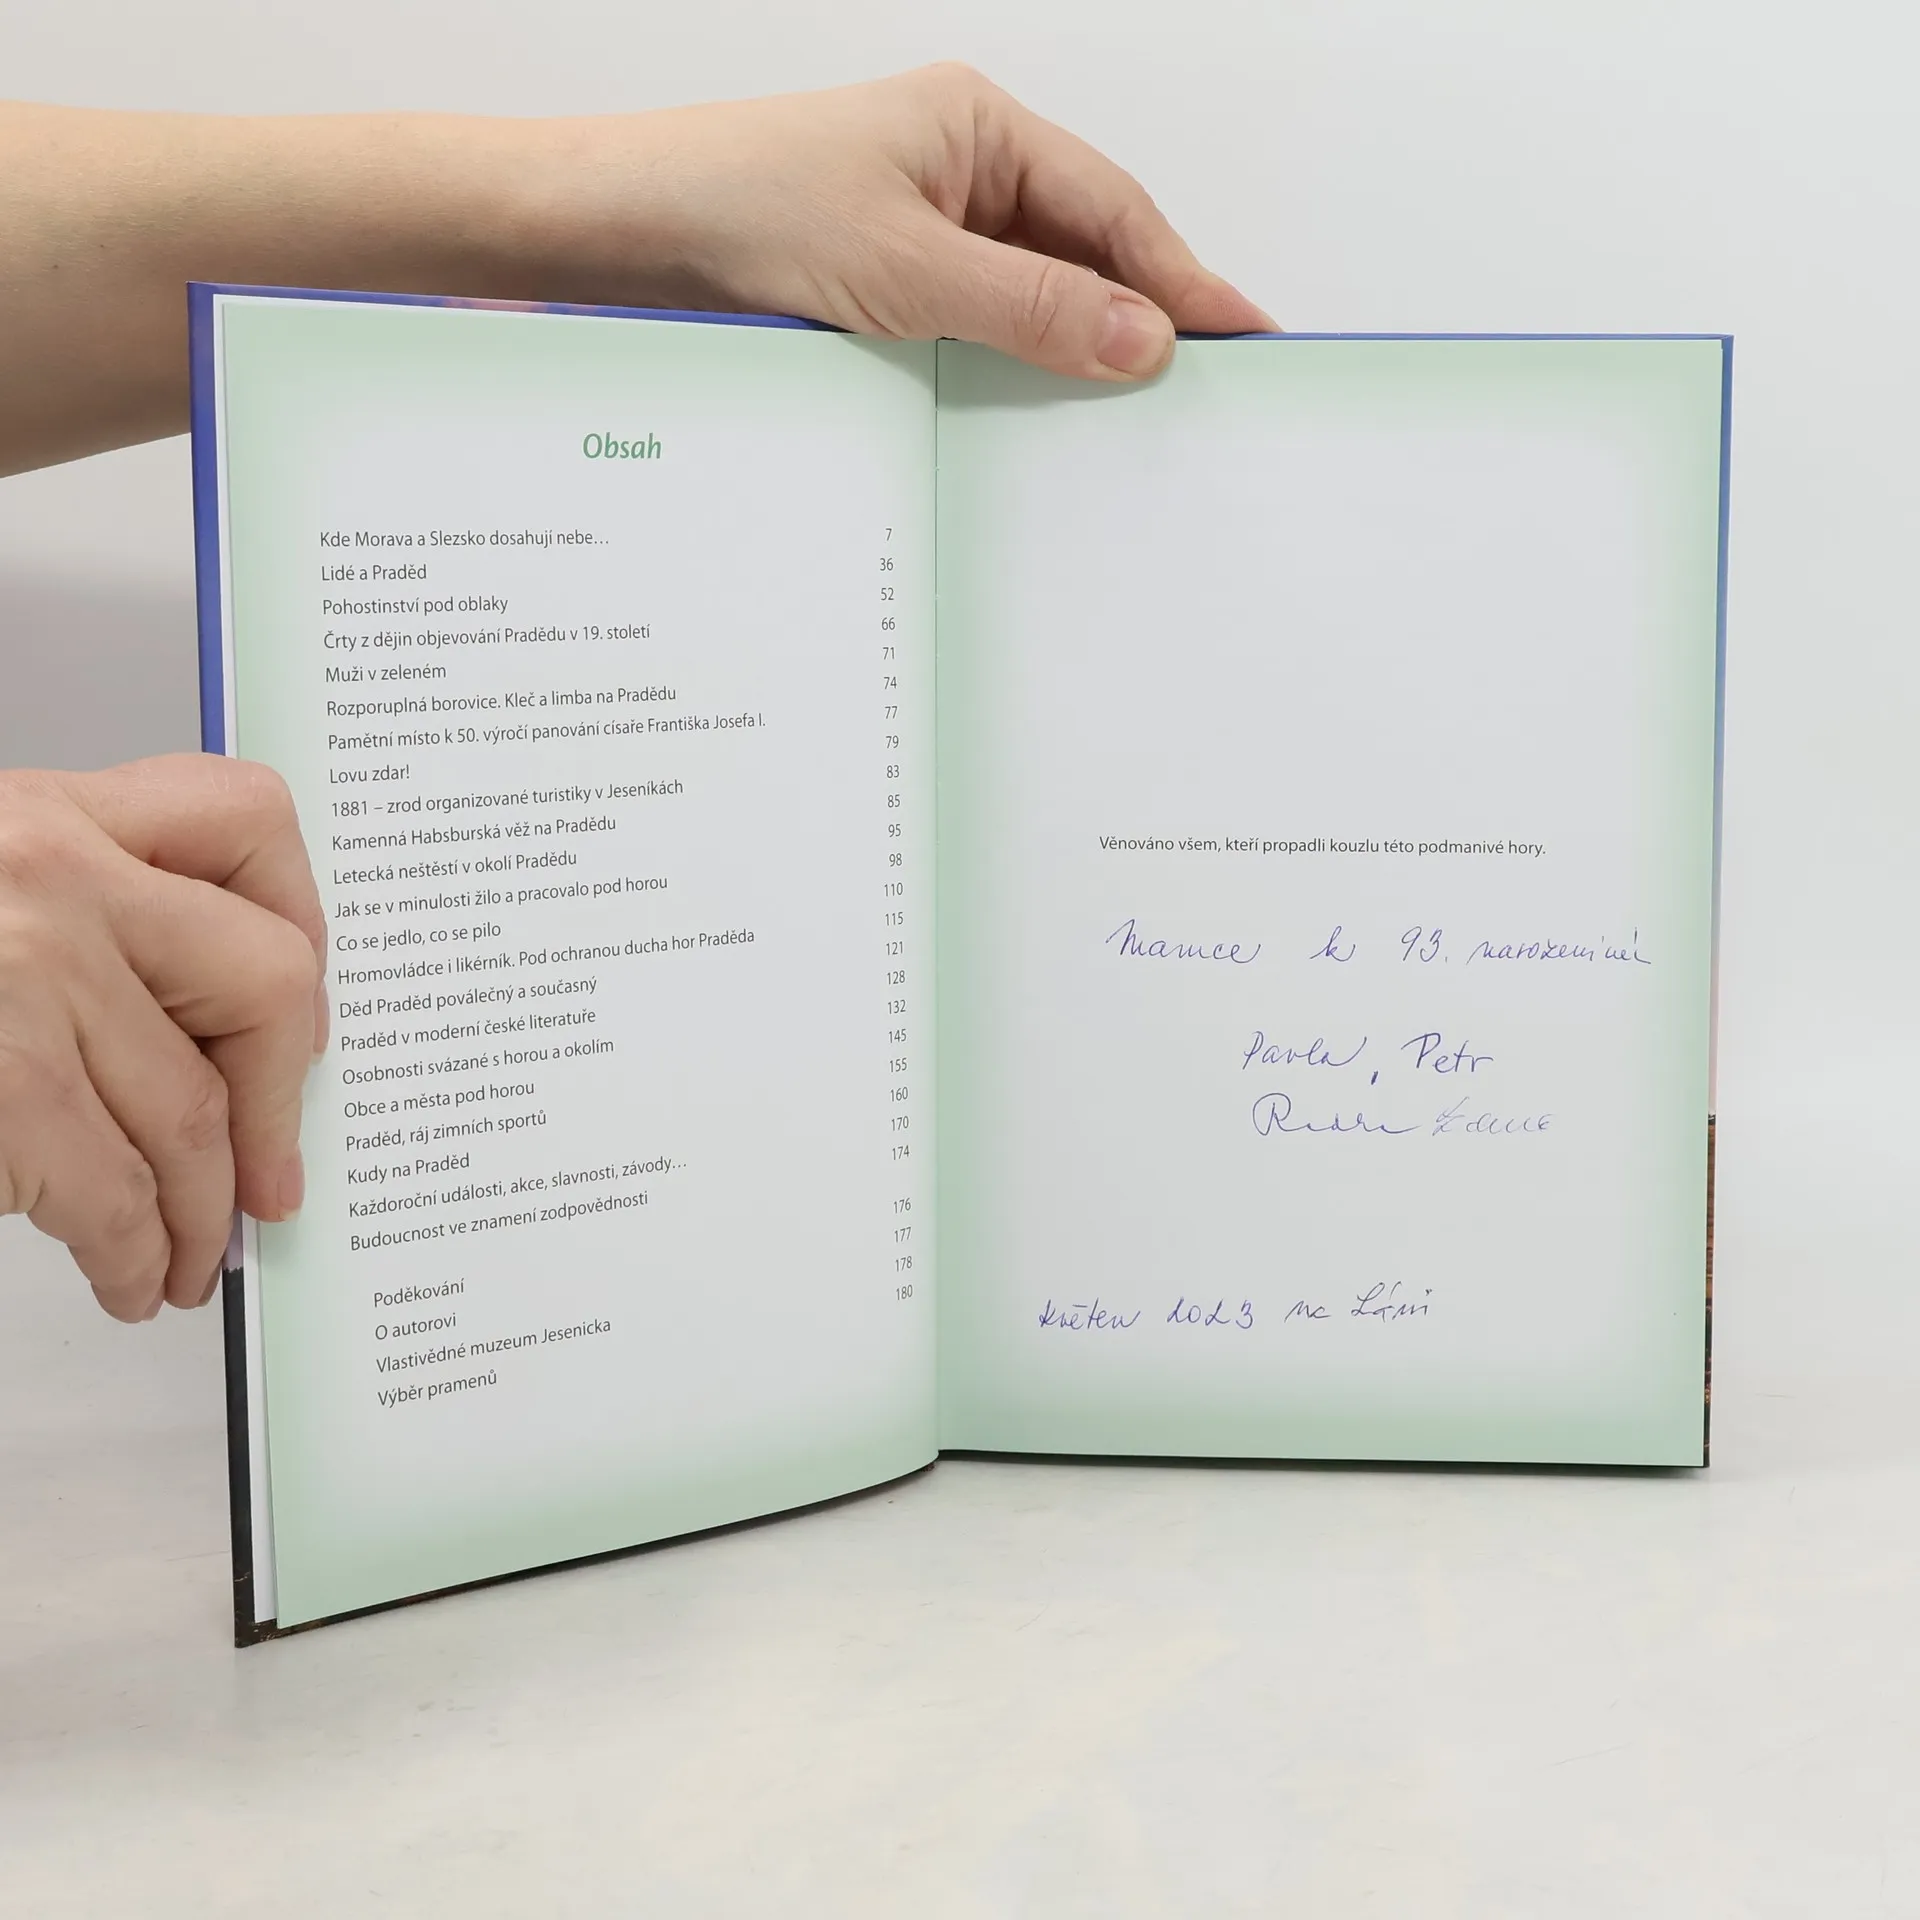 Obsah
Kde Morava a Slezsko dosahují nebe… 7
Lidé a Praděd 36
Pohostinství pod oblaky 52
Črty z dějin objevování Pradědu v 19. století 66
Muži v zeleném 71
Rozporuplná borovice. Kleč a limba na Pradědu 74
Pamětní místo k 50. výročí panování císaře Františka Josefa I. 77
Lovu zdar! 79
1881 – zrod organizované turistiky v Jeseníkách 83
Kamenná Habsburská věž na Pradědu 85
Letecká neštěstí v okolí Pradědu 95
Jak se v minulosti žilo a pracovalo pod horou 98
Co se jedlo, co se pilo 110
Hromovládce i likérník. Pod ochranou ducha hor Praděda 115
Děd Praděd poválečný a současný 121
Praděd v moderní české literatuře 128
Osobnosti svázané s horou a okolím 132
Obce a města pod horou 145
Praděd, ráj zimních sportů 155
Kudy na Praděd 160
Každoroční události, akce, slavnosti, závody… 170
Budoucnost ve znamení zodpovědnosti 174
Poděkování 176
O autorovi 177
Vlastivědné muzeum Jesenicka 178
Výběr pramenů 180
Věnováno všem, kteří propadli kouzlu této podmanivé hory.
Mamce k 93. narozeninám
Pavla, Petr
Květen 2023 na